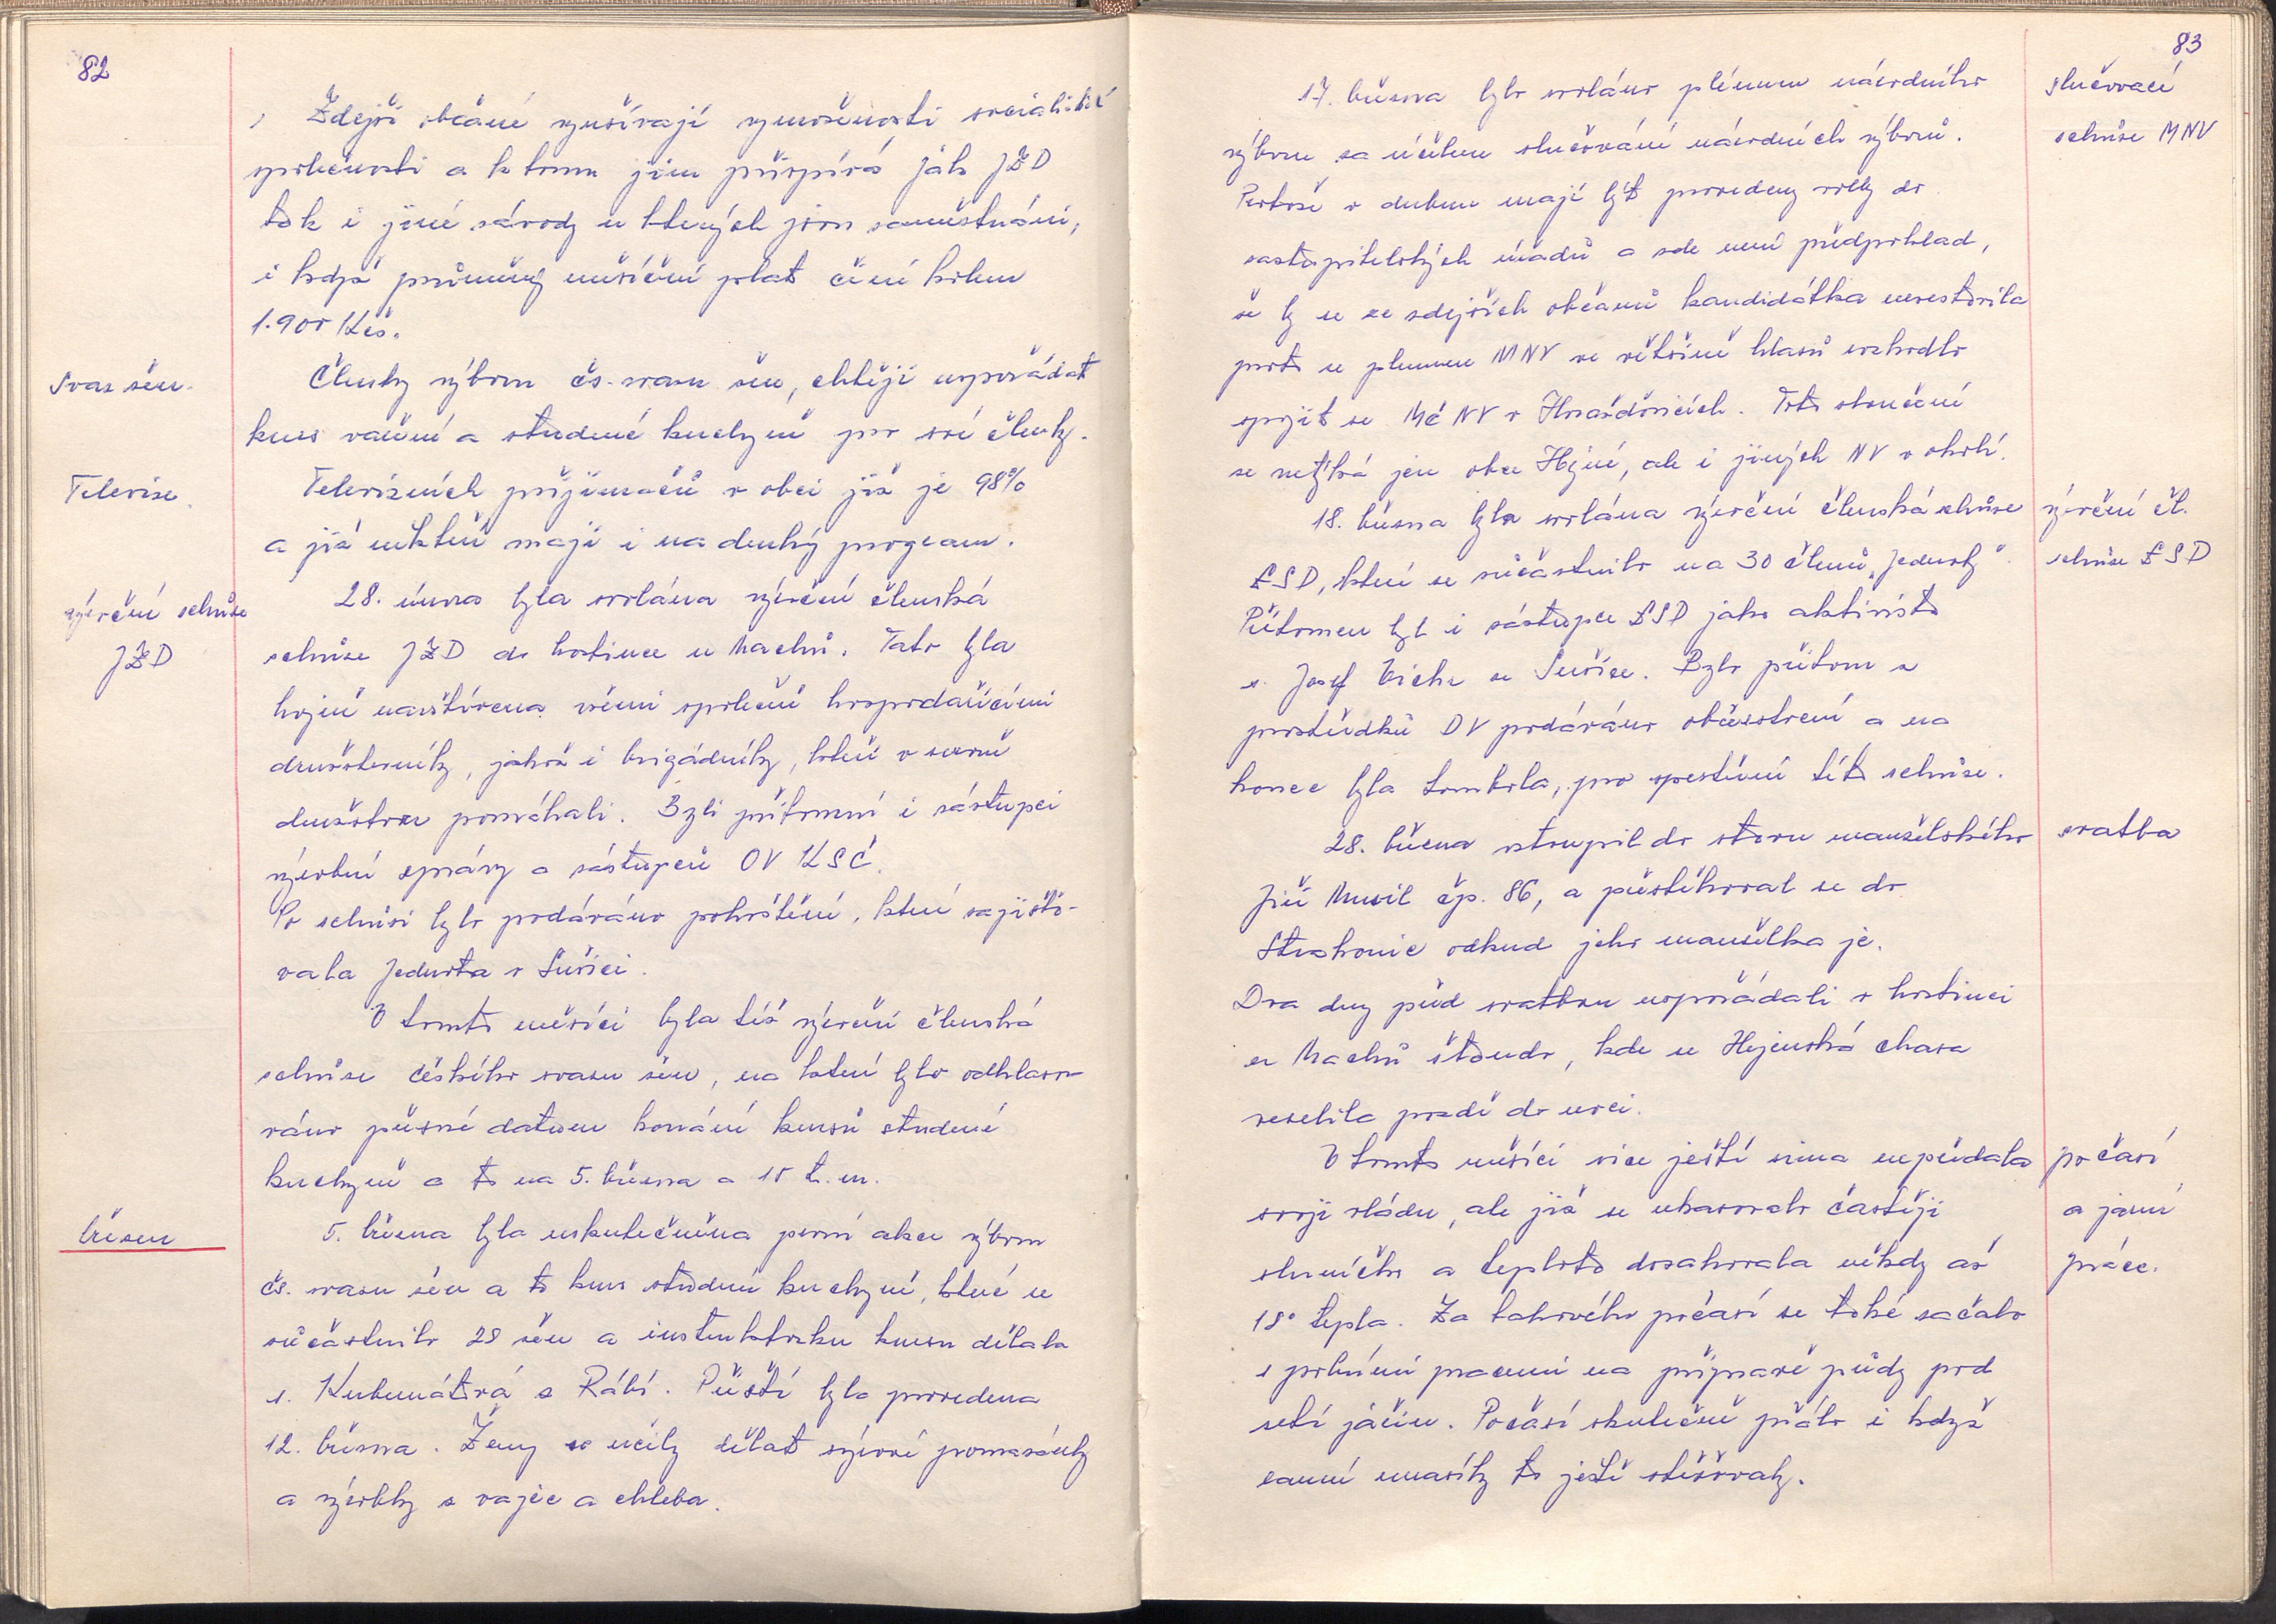 82
Zdejší občané využívají vymoženosti socialistické
společnosti a k tomu jim přispívá jak JZD
tak i jiné závody u kterých jsou zaměstnáni,
i když průměrný měsíční plat činí kolem
1.900 Kčs.
Svaz žen.
Členky výboru čs. svazu žen, chtějí uspořádat
kurs vaření a studené kuchyně pro své členky.
Televise.
Televizních přijímačů v obci již je 98%
a již někteří mají i na druhý program.
výroční schůze
JZD
28. února byla svolána výroční členská
schůze JZD do hostince u Machů. Tato byla
hojně navštívena všemi společně hospodařícími
družstevníky, jakož i brigádníky, kteří v sezoně
družstvu pomáhali. Byli přítomni i zástupci
výrobní správy a zástupců OV KSČ.
Po schůzi bylo podáváno pohoštění, které zajišťo-
vala Jednota v Sušici.
V tomto měsíci byla též výroční členská
schůze českého svazu žen, na které bylo odhlaso-
váno přesné datum konání kursů studené
kuchyně a to na 5. března a 15 t. m.
březen
5. března byla uskutečněna první akce výboru
čs. svazu žen a to kurs studené kuchyně, které se
súčastnilo 28 žen a instruktorku kursu dělala
s. Kubernátová z Rábí. Příští byla provedena
12. března. Ženy se učily dělat sýrové pomazánky
a výrobky z vajec a chleba.
83
17. března bylo svoláno plénum národního
výboru za účelem slučování národních výborů.
Protože v dubnu mají být provedeny volby do
zastupitelských úřadů a zde není předpoklad,
že by se ze zdejších občanů kandidátka sestavila
proto se plenum MNV ve většině hlasů rozhodlo
spojit se MěNV v Horažďovicích. Toto sloučení
se netýká jen obce Hejné, ale i jiných NV v okolí.
slučovací
schůze MNV
18. března byla svolána výroční členská schůze
LSD, které se súčastnilo na 30 členů „Jednoty".
Přítomen byl i zástupce LSD jako aktivista
s. Josef Vichr ze Sušice. Bylo přitom z
prostředků DV podáváno občerstvení a na
konec byla tombola, pro zpestření této schůze.
výroční čl.
schůze LSD
28. března vstoupil do stavu manželského
Jiří Musil čp. 86, a přestěhoval se do
Strakonic odkud jeho manželka je.
Dva dny před svatbou uspořádali v hostinci
u Machů štando, kde se Hejenská chasa
veselila pozdě do noci.
svatba
V tomto měsíci sice ještě zima nepředala
svoji vládu, ale již se ukazovalo častěji
sluníčko a teplota dosahovala někdy až
18° tepla. Za takového počasí se také začalo
s polními pracemi na přípravě půdy pod
setí jařin. Počasí skutečně přálo i když
ranní mrazíky to ještě stěžovaly.
počasí
a jarní
práce.